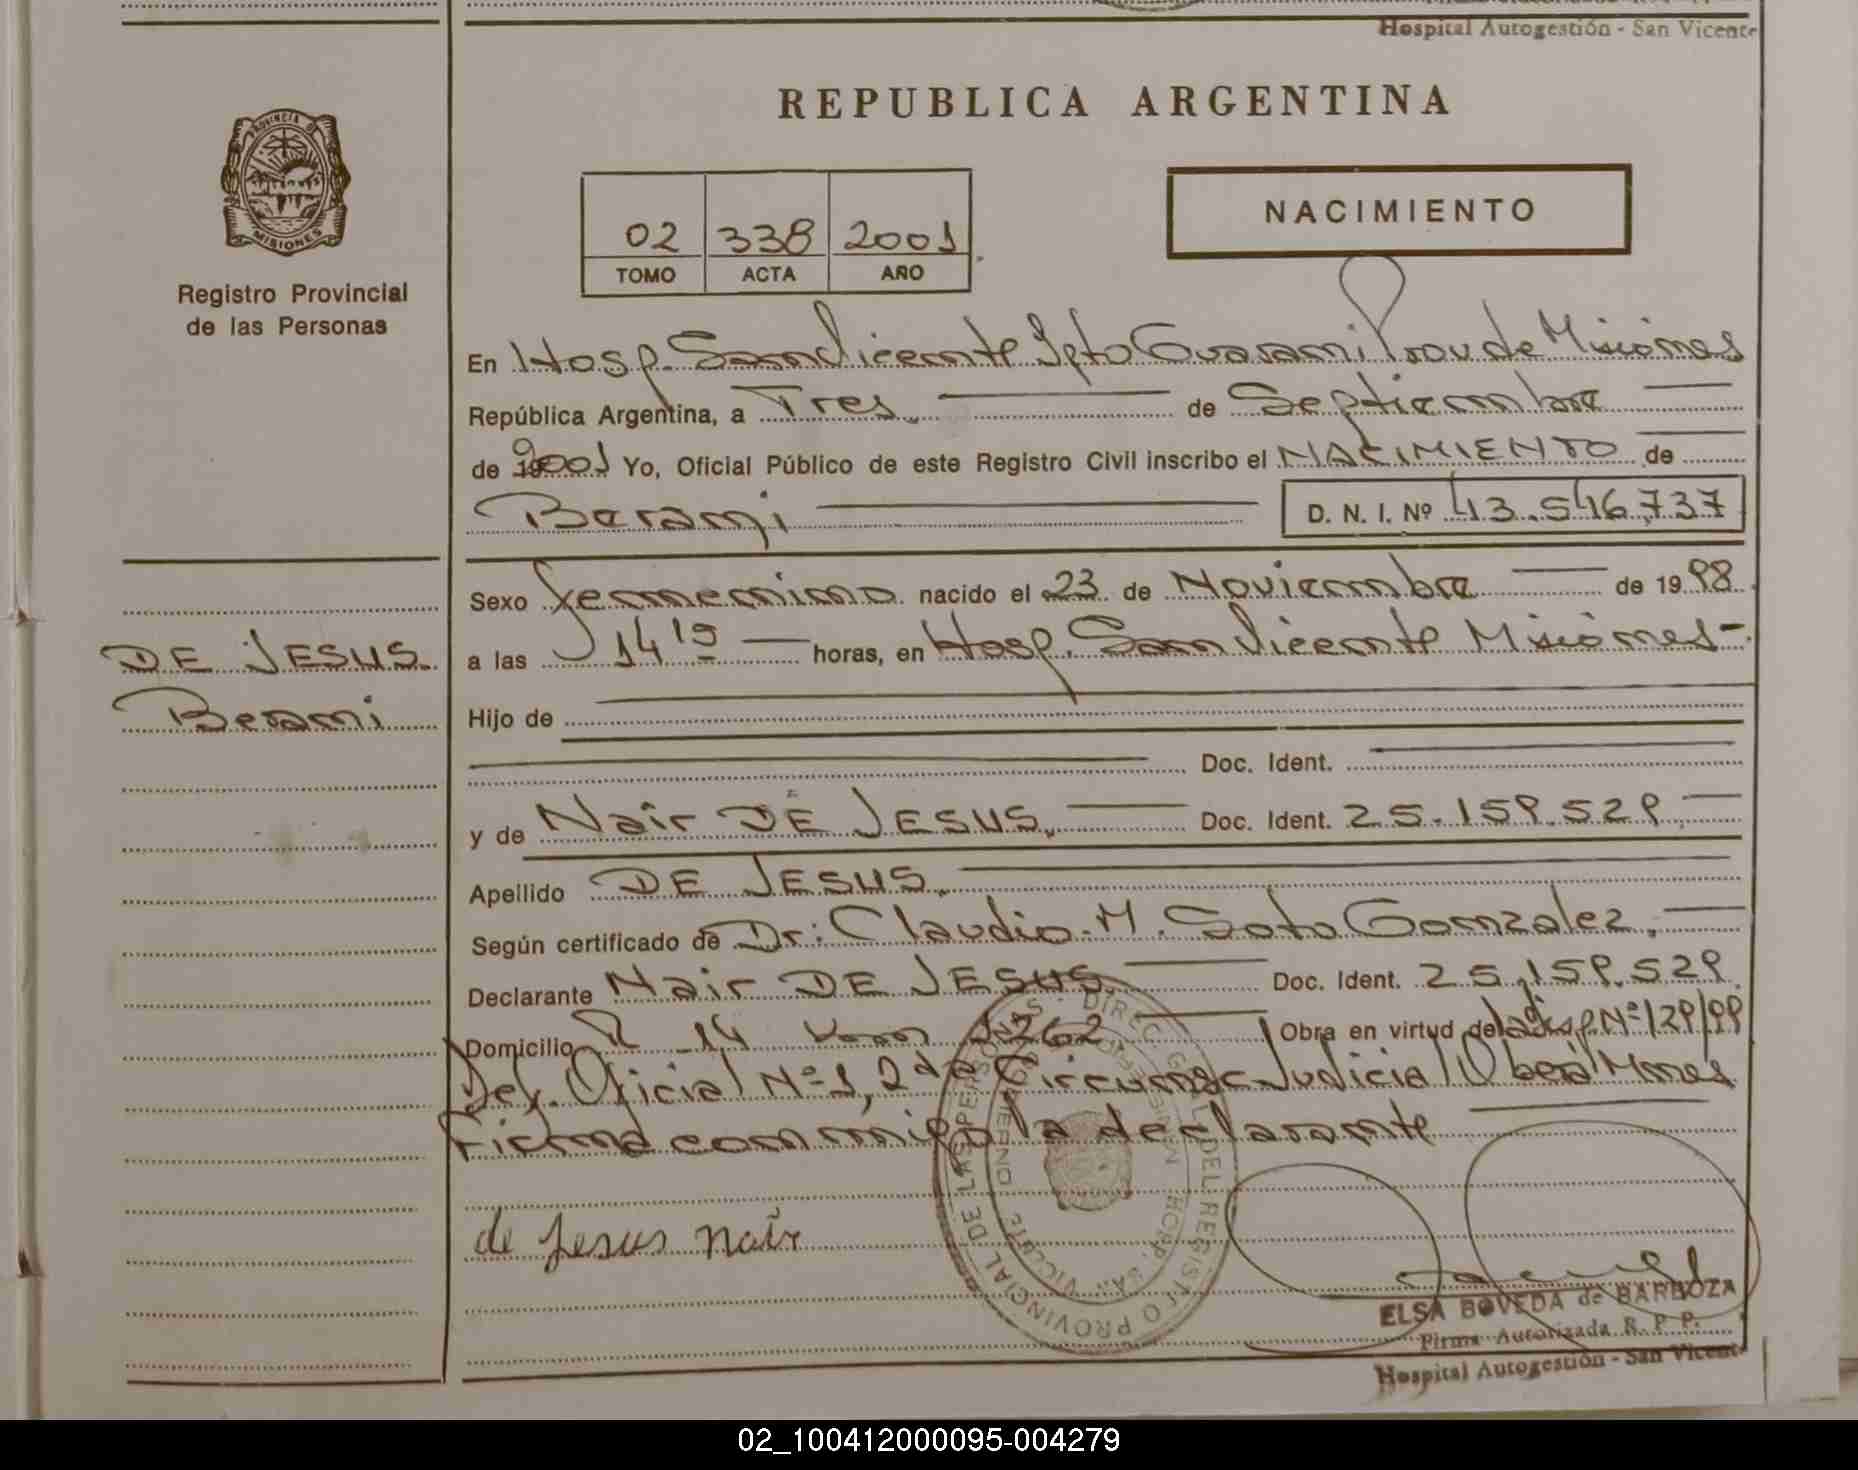 Hospital Autogestión - San Vicente
REPUBLICA ARGENTINA
PROVINCIA DE
MISIONES
Registro Provincial
de las Personas
02 338 2001
TOMO ACTA AÑO
NACIMIENTO
En Hosp. San Vicente Dpto Guarani Prov de Misiones
República Argentina, a Tres de Septiembre
de 2001 Yo, Oficial Público de este Registro Civil inscribo el NACIMIENTO de
Berami D. N. I. Nº 43.546.737
Sexo femenino nacido el 23 de Noviembre de 1998
a las 14 15 horas, en Hosp. San Vicente Misiones-
DE JESUS
Berami
Hijo de
Doc. Ident.
y de Nair DE JESUS, Doc. Ident. 25.159.529
Apellido DE JESUS
Según certificado de Dr: Claudio. M. Soto Gonzalez,
Declarante Nair DE JESUS Doc. Ident. 25.159.529
Domicilio R 14 km 1262 Obra en virtud de la disp Nº 129/99
Def. Oficial Nº 1, 2da Circunsc Judicial Oberá Mnes
Firma conmigo la declarante
de Jesus Nair
DIREC. GRAL. DEL REGISTRO PROVINCIAL DE LAS PERSONAS
HOSP. SAN VICENTE
ELSA BOVEDA de BARBOZA
Firma Autorizada R. P. P.
Hospital Autogestión - San Vicente
02_100412000095-004279